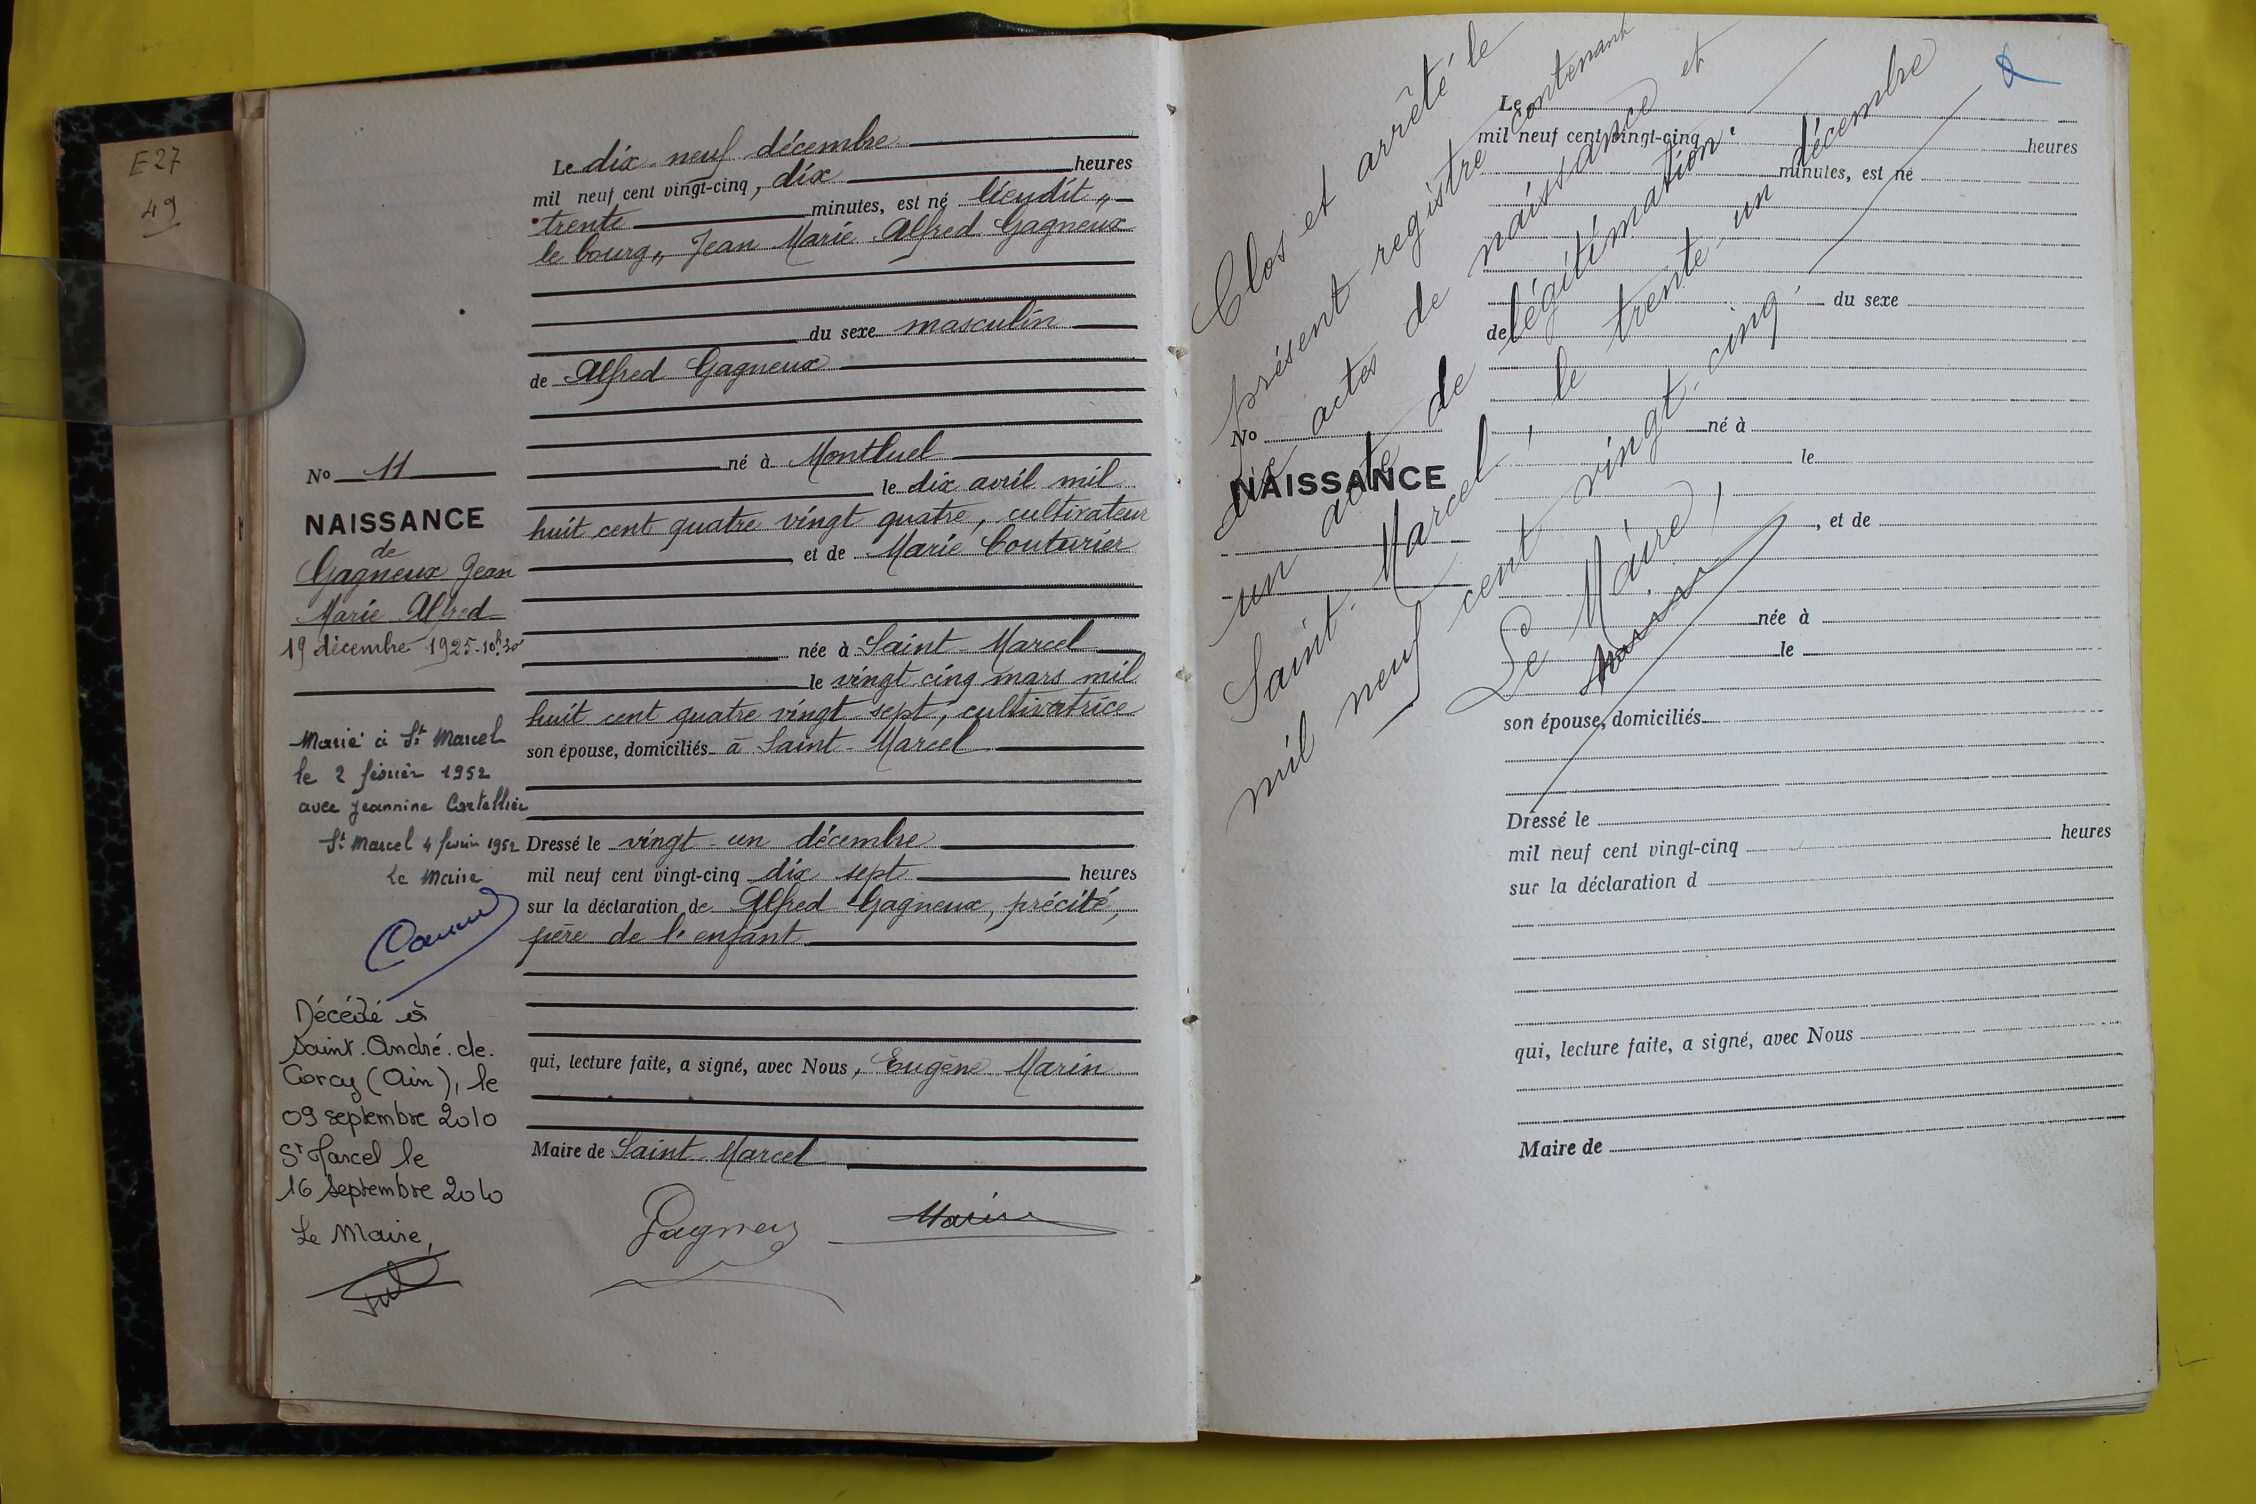 E27
49
Le dix-neuf décembre
mil neuf cent vingt-cinq, dix heures
trente minutes, est né lieudit "
le bourg" Jean Marie Alfred Gagneux
du sexe masculin
de Alfred Gagneux
né à Montluel
le dix avril mil
huit cent quatre vingt quatre, cultivateur
et de Marie Couturier
née à Saint-Marcel
le vingt cinq mars mil
huit cent quatre vingt sept, cultivatrice
son épouse, domiciliés à Saint-Marcel
Dressé le vingt-un décembre
mil neuf cent vingt-cinq dix sept heures
sur la déclaration de Alfred Gagneux, précité,
père de l'enfant
qui, lecture faite, a signé, avec Nous, Eugène Marin
Maire de Saint-Marcel
Gagneux Marin
No 11
NAISSANCE
de
Gagneux Jean
Marie Alfred
19 décembre 1925-10h30
Marié à St Marcel
le 2 février 1952
avec Jeannine Cartellier
St Marcel 4 février 1952
Le Maire
Décédé à
Saint.André.de.
Corcy (Ain), le
09 septembre 2010
St Marcel le
16 septembre 2010
Le Maire,
Clos et arrêté le
présent registre contenant
dix actes de naissance et
un acte de légitimation.
Saint-Marcel, le trente-un décembre
mil neuf cent vingt-cinq.
Le Maire,
Marin
Le
mil neuf cent vingt-cinq heures
minutes, est né
du sexe
de
né à
le
, et de
née à
le
son épouse, domiciliés
Dressé le
mil neuf cent vingt-cinq heures
sur la déclaration d
qui, lecture faite, a signé, avec Nous
Maire de
No
NAISSANCE